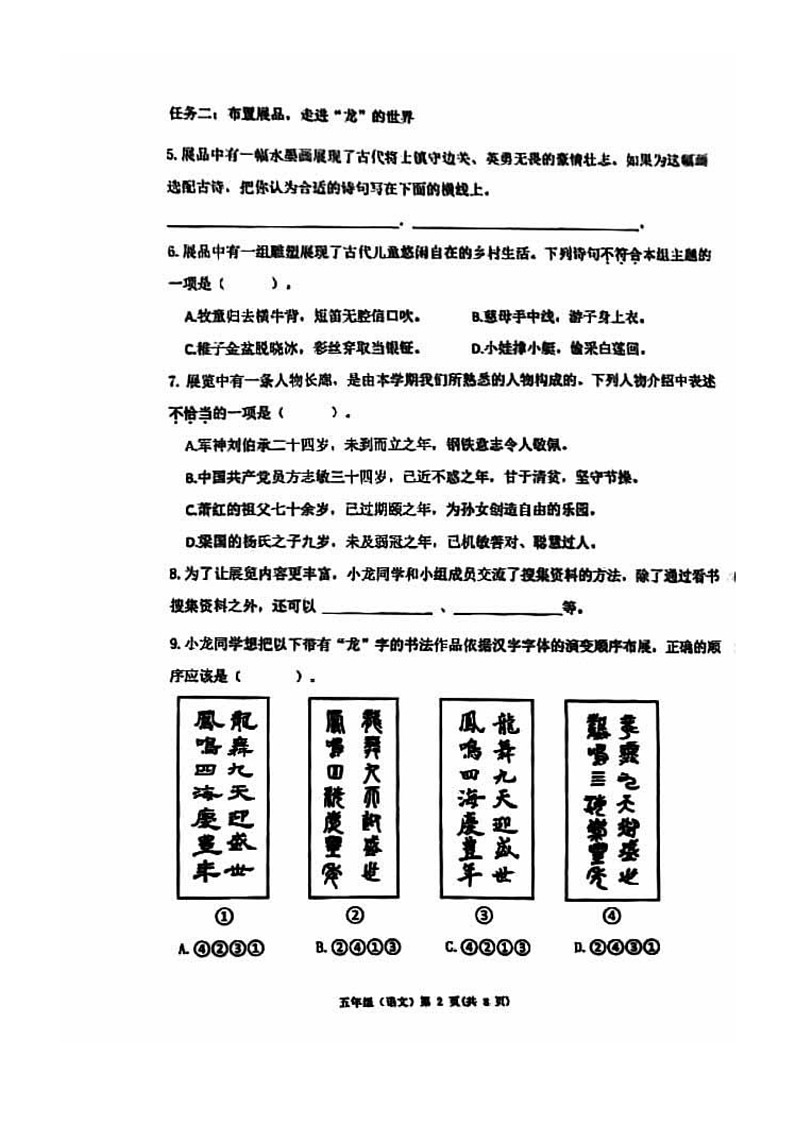 任务二：布置展品，走进“龙”的世界
5.展品中有一幅水墨画展现了古代将士镇守边关、英勇无畏的豪情壮志。如果为这幅画
选配古诗，把你认为合适的诗句写在下面的横线上。
6.展品中有一组雕塑展现了古代儿童悠闲自在的乡村生活。下列诗句不符合本组主题的
一项是（ ）。
A.牧童归去横牛背，短笛无腔信口吹。 B.慈母手中线，游子身上衣。
C.稚子金盆脱晓冰，彩丝穿取当银钲。 D.小娃撑小艇，偷采白莲回。
7. 展览中有一条人物长廊，是由本学期我们所熟悉的人物构成的。下列人物介绍中表述
不恰当的一项是（ ）。
A.军神刘伯承二十四岁，未到而立之年，钢铁意志令人敬佩。
B.中国共产党员方志敏三十四岁，已近不惑之年，甘于清贫，坚守节操。
C.萧红的祖父七十余岁，已过期颐之年，为孙女创造自由的乐园。
D.梁国的杨氏之子九岁，未及弱冠之年，已机敏善对、聪慧过人。
8.为了让展览内容更丰富，小龙同学和小组成员交流了搜集资料的方法，除了通过看书
搜集资料之外，还可以 ____________ 、____________等。
9.小龙同学想把以下带有“龙”字的书法作品依据汉字字体的演变顺序布展，正确的顺
序应该是（ ）。
龍舞九天迎盛世
鳳鳴四海慶豊年
龍舞九天迎盛世
鳳鳴四海慶豊年
① ② ③ ④
A.④②③① B.②④①③ C.④②①③ D.②④③①
五年级（语文）第 2 页(共 8 页)